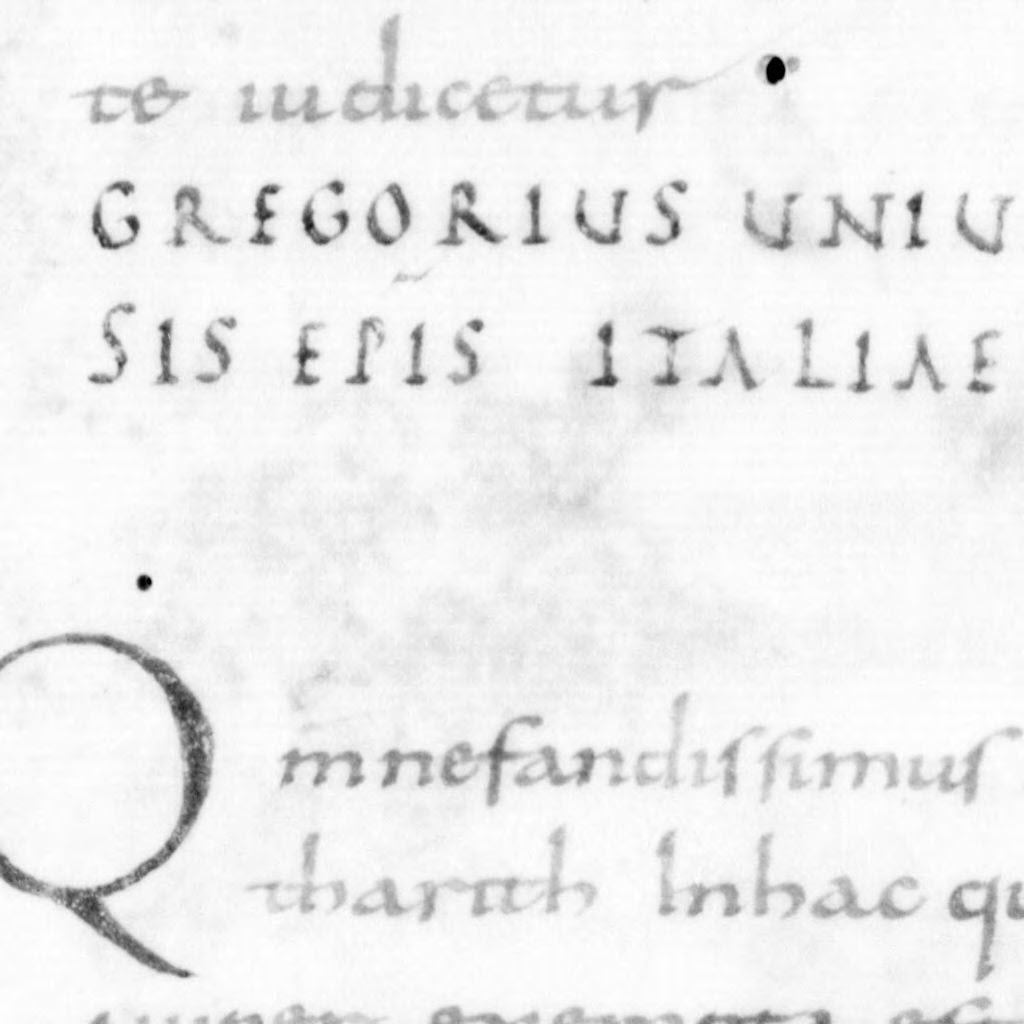 te iudicetur
GREGORIUS UNIU
SIS EPIS ITALIAE
Qm nefandissimus
tharith In hac qu